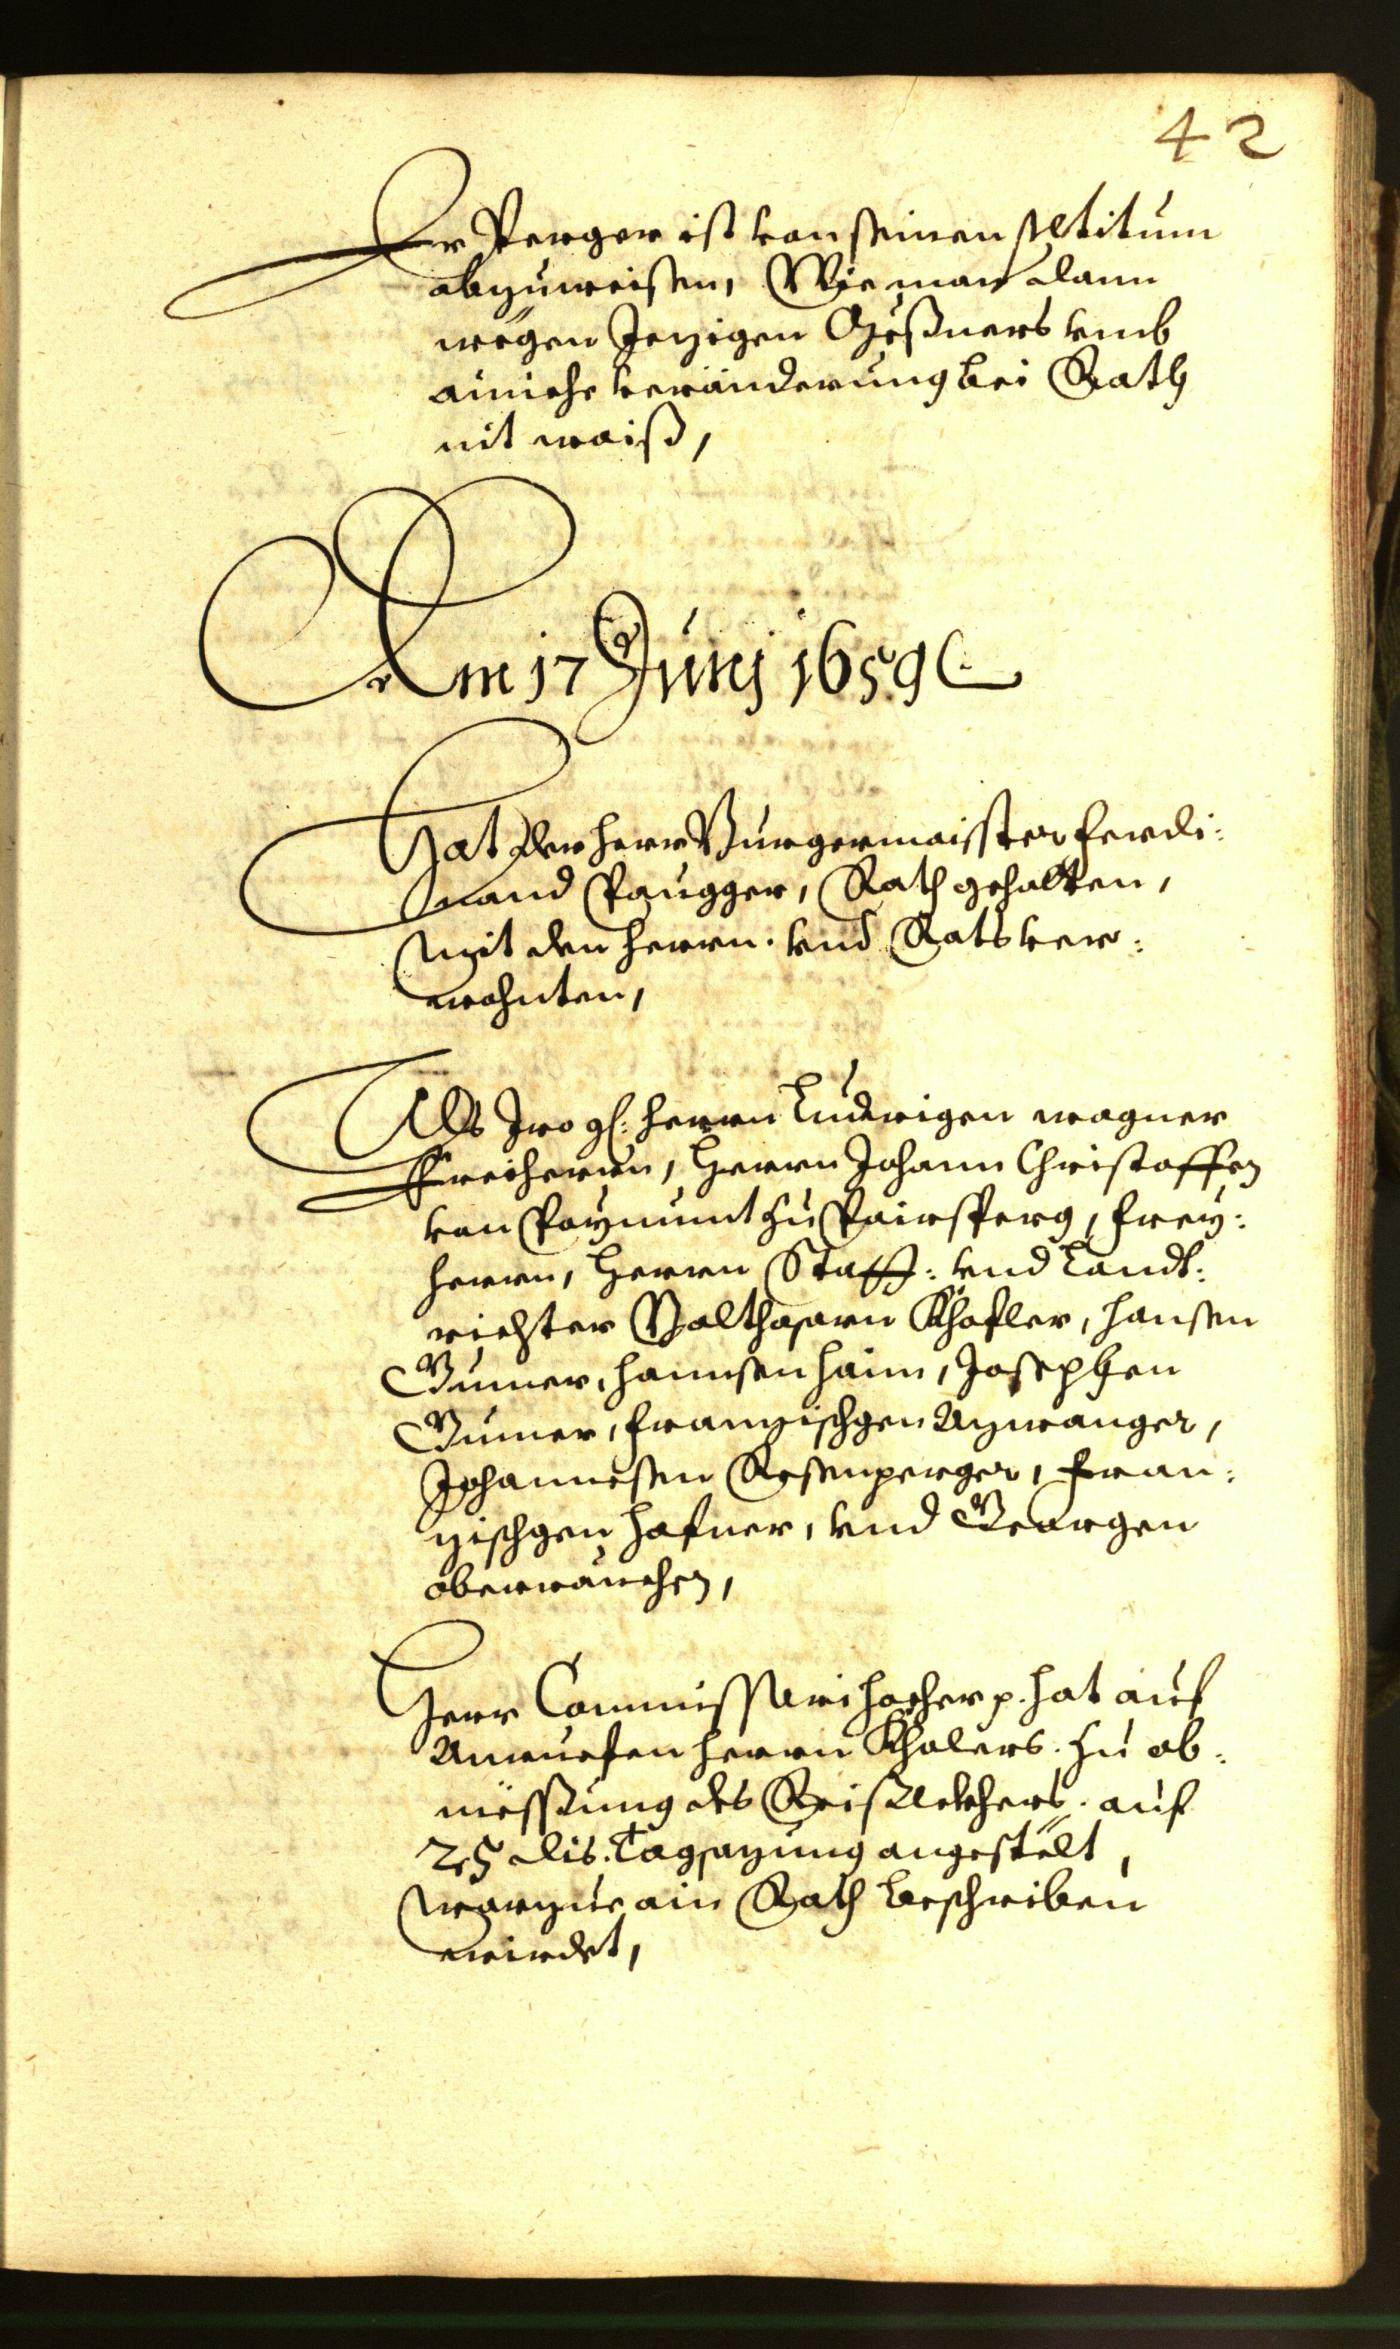 42
Er Perger ist von seinen petitum
abzuweisen, Wie man dann
wegen Jezigen Gößners umb
ainiche veränderung bei Rath
nit waiß,
Am 17 Junj 1659
Hat der herr Burgermaisster Ferdi:
nand Paugger, Rath gehalten,
mit den herrn. und Rats ver:
wohnten,
Als Iro gl: herrn Ludwigen wagner
Freiherrn, Herrn Johann Christoffen
von Paymunt zu Pairsperg, Frey:
herrn, Herrn Statt: und Landt:
richter Balthasarn Khofler, Hansen
Gumer, Hannsen Haim, Josephen
Gumer, Franzischgen Azwanger,
Johannesen Rosenperger, Fran:
zischgen Hafner, und Georgen
oberrauchen,
Herr Commissari Hocher p. hat auf
Anruefen herrn Khalers. zu ab:
messung des auf
25 dis. Tagsazung angestelt,
warzue ain Rath beschriben
wirdet,